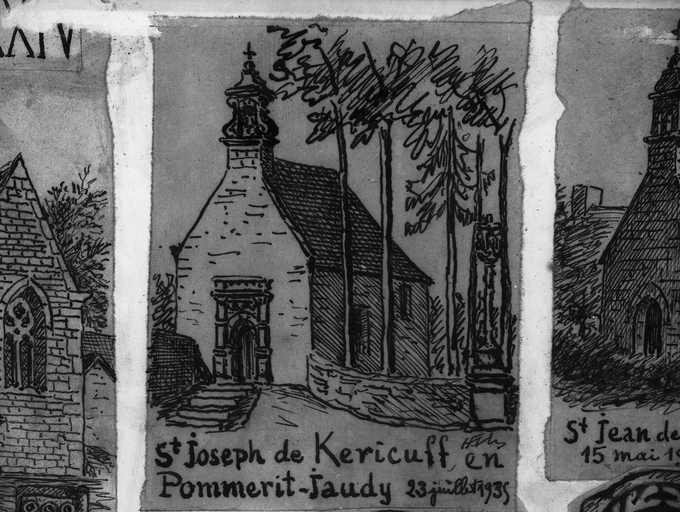 XXIV
St Joseph de Kericuff en
Pommerit-Jaudy 23 juillet 1935
St Jean de
15 mai 19